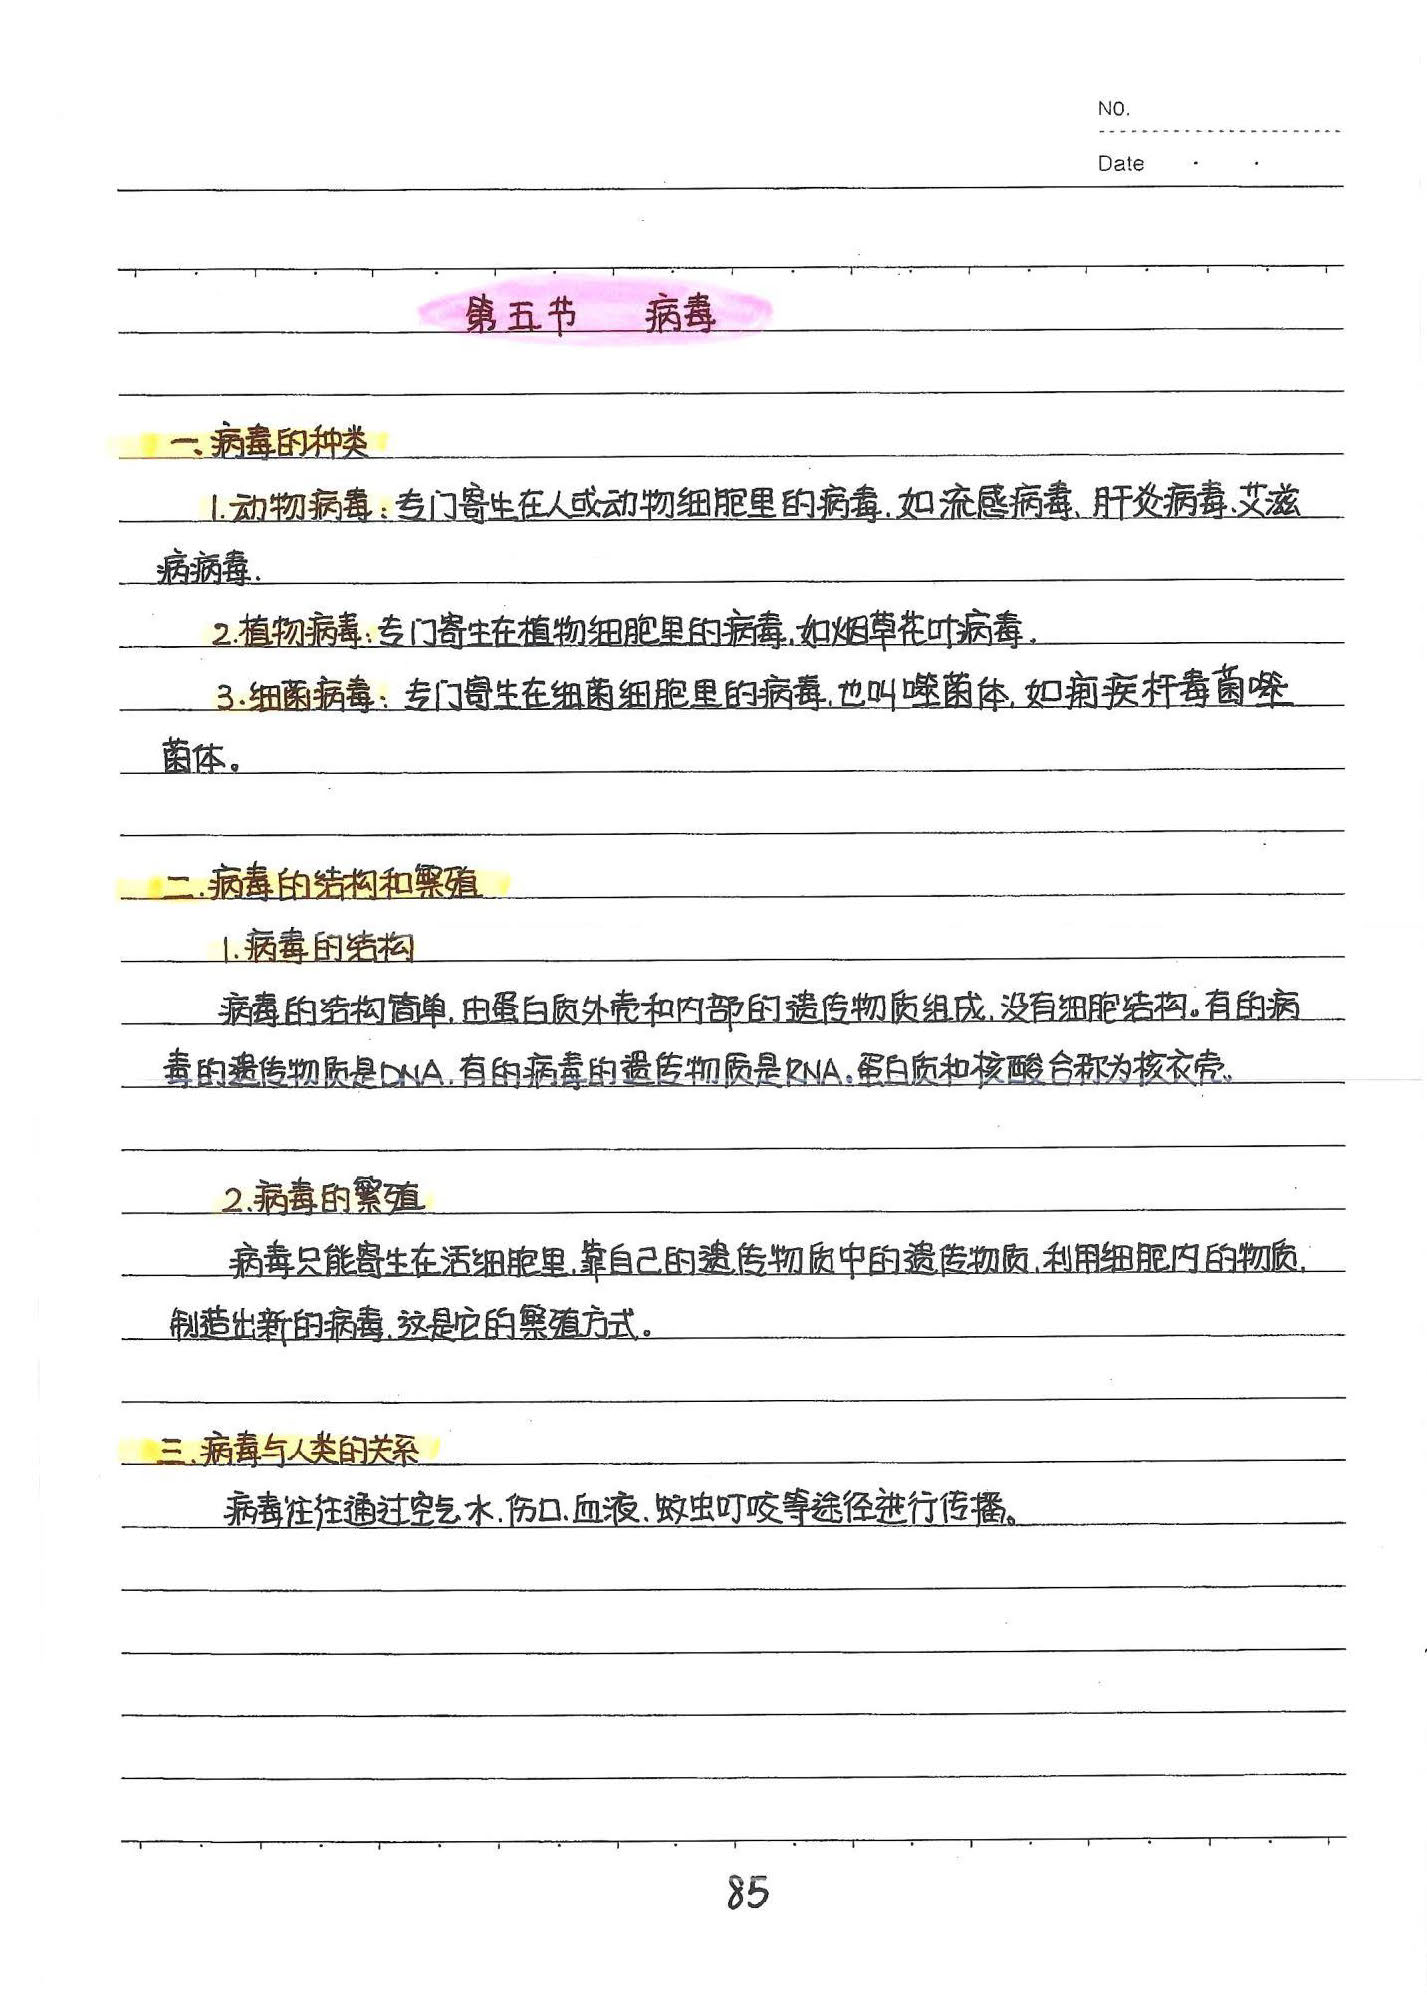 NO.
Date
第五节 病毒
一、病毒的种类
1.动物病毒:专门寄生在人或动物细胞里的病毒,如流感病毒、肝炎病毒、艾滋
病病毒.
2.植物病毒:专门寄生在植物细胞里的病毒,如烟草花叶病毒.
3.细菌病毒:专门寄生在细菌细胞里的病毒,也叫噬菌体,如痢疾杆毒菌噬
菌体。
二.病毒的结构和繁殖
1.病毒的结构
病毒的结构简单,由蛋白质外壳和内部的遗传物质组成,没有细胞结构。有的病
毒的遗传物质是DNA,有的病毒的遗传物质是RNA。蛋白质和核酸合称为核衣壳。
2.病毒的繁殖
病毒只能寄生在活细胞里,靠自己的遗传物质中的遗传物质,利用细胞内的物质,
制造出新的病毒,这是它的繁殖方式。
三.病毒与人类的关系
病毒往往通过空气水.伤口.血液.蚊虫叮咬等途径进行传播。
85